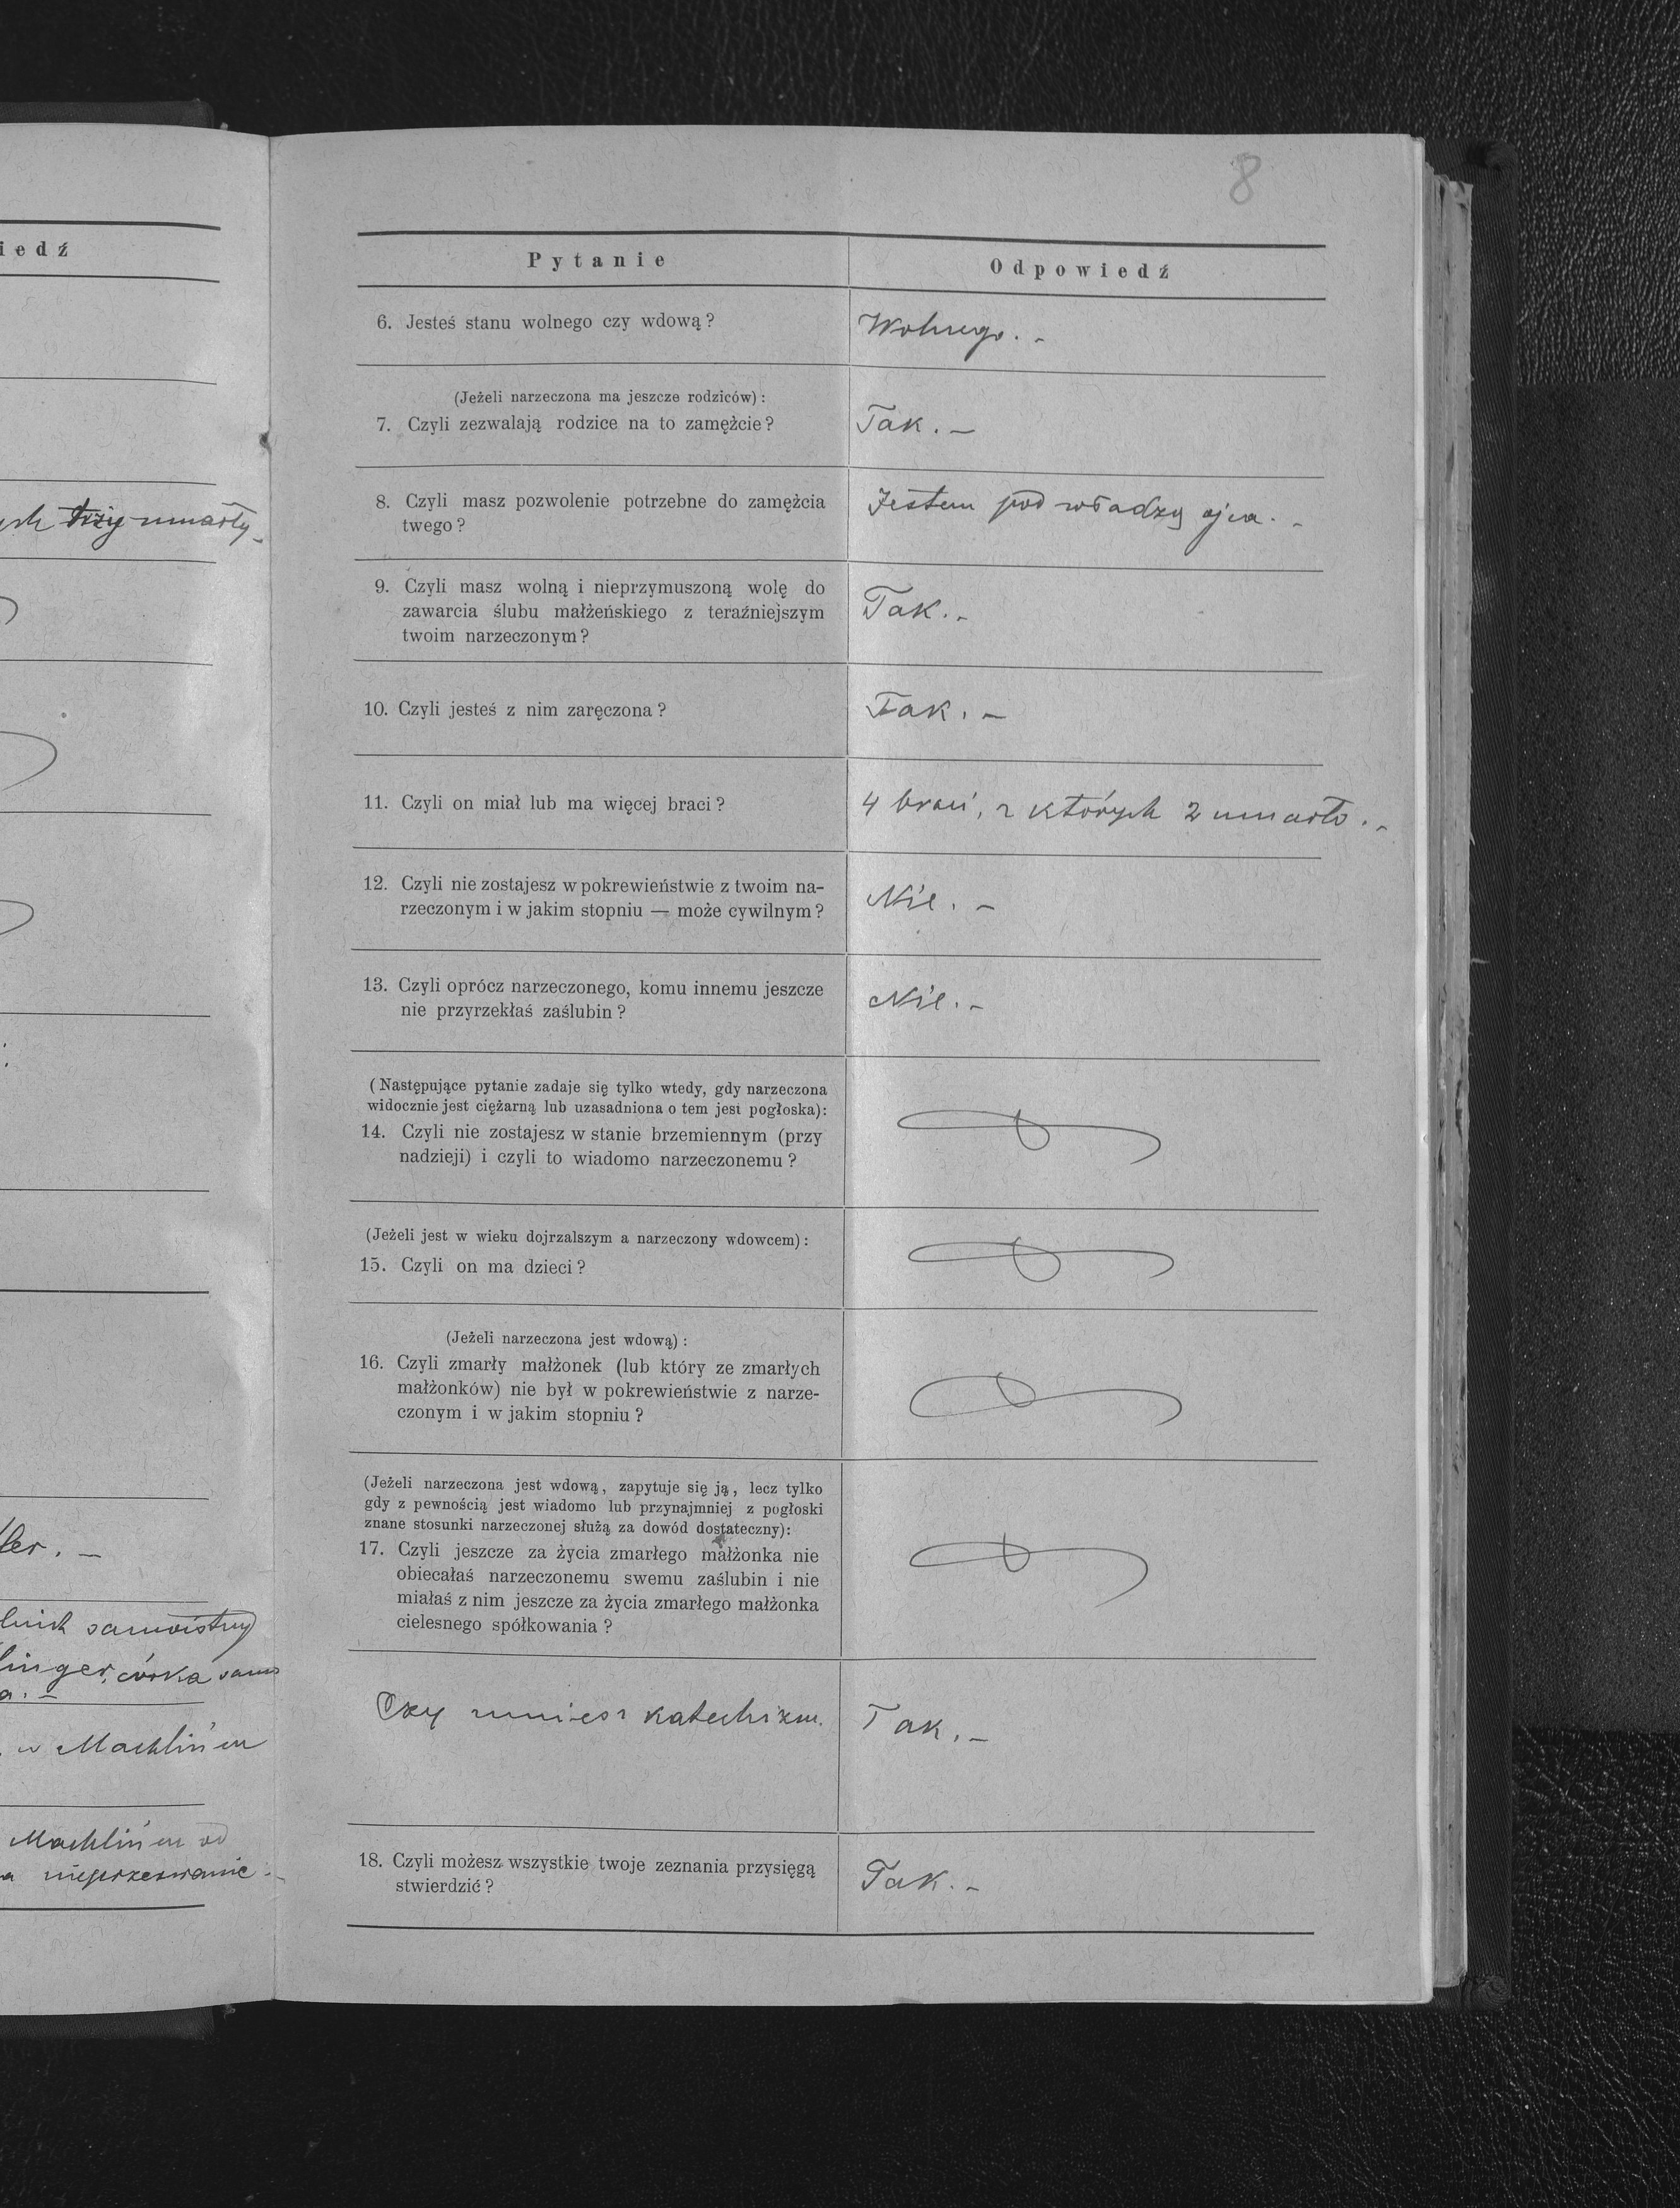 iedź
trzy umarły
ler. –
samoistny
linger, córka samo
a. –
w Machlińcu
Machlińcu od
a nieprzerwanie. –
8
Pytanie
Odpowiedź
6. Jesteś stanu wolnego czy wdową?
Wolnego. –
(Jeżeli narzeczona ma jeszcze rodziców):
7. Czyli zezwalają rodzice na to zamężcie?
Tak. –
8. Czyli masz pozwolenie potrzebne do zamężcia
twego?
Jestem pod władzą ojca. –
9. Czyli masz wolną i nieprzymuszoną wolę do
zawarcia ślubu małżeńskiego z teraźniejszym
twoim narzeczonym?
Tak. –
10. Czyli jesteś z nim zaręczona?
Tak. –
11. Czyli on miał lub ma więcej braci?
4 braci, z których 2 umarło. –
12. Czyli nie zostajesz w pokrewieństwie z twoim na-
rzeczonym i w jakim stopniu — może cywilnym?
Nie. –
13. Czyli oprócz narzeczonego, komu innemu jeszcze
nie przyrzekłaś zaślubin?
Nie. –
(Następujące pytanie zadaje się tylko wtedy, gdy narzeczona
widocznie jest ciężarną lub uzasadniona o tem jest pogłoska):
14. Czyli nie zostajesz w stanie brzemiennym (przy
nadzieji) i czyli to wiadomo narzeczonemu?
(Jeżeli jest w wieku dojrzalszym a narzeczony wdowcem):
15. Czyli on ma dzieci?
(Jeżeli narzeczona jest wdową):
16. Czyli zmarły małżonek (lub który ze zmarłych
małżonków) nie był w pokrewieństwie z narze-
czonym i w jakim stopniu?
(Jeżeli narzeczona jest wdową, zapytuje się ją, lecz tylko
gdy z pewnością jest wiadomo lub przynajmniej z pogłoski
znane stosunki narzeczonej służą za dowód dostateczny):
17. Czyli jeszcze za życia zmarłego małżonka nie
obiecałaś narzeczonemu swemu zaślubin i nie
miałaś z nim jeszcze za życia zmarłego małżonka
cielesnego spółkowania?
Czy umiesz katechizm.
Tak. –
18. Czyli możesz wszystkie twoje zeznania przysięgą
stwierdzić?
Tak. –